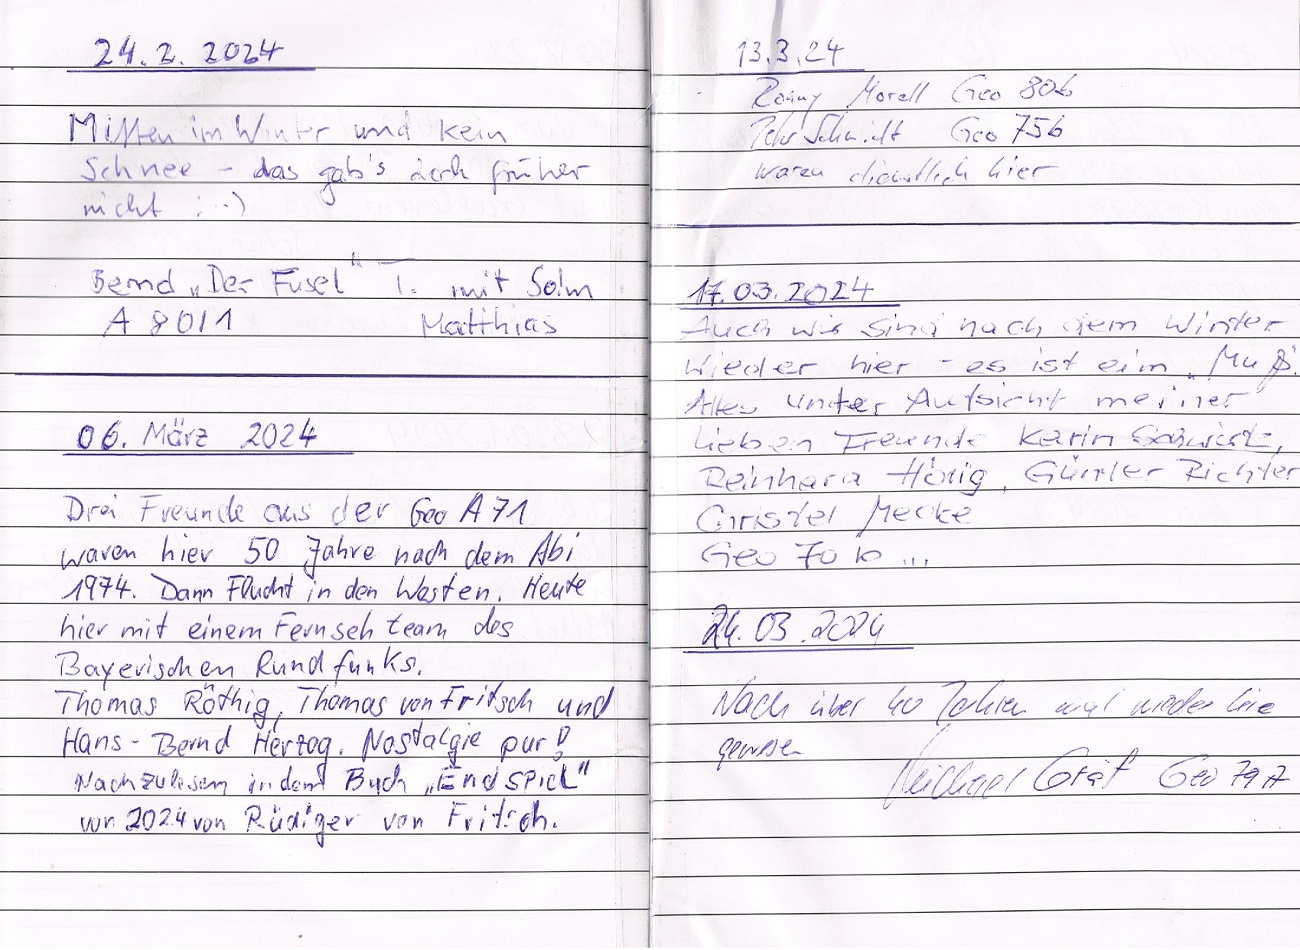 24.2.2024
Mitten im Winter und kein
Schnee – das gab's doch früher
nicht :-)
Bernd „Der Fusel“ T. mit Sohn
A 80/1 Matthias
06. März 2024
Drei Freunde aus der Geo A 71
waren hier 50 Jahre nach dem Abi
1974. Dann Flucht in den Westen. Heute
hier mit einem Fernsehteam des
Bayerischen Rundfunks.
Thomas Röthig, Thomas von Fritsch und
Hans-Bernd Herzog. Nostalgie pur!
Nachzulesen in dem Buch „Endspiel“
von 2024 von Rüdiger von Fritsch.
13.3.24
Ronny Morell Geo 80b
Schmidt Geo 75b
waren dienstlich hier
17.03.2024
Auch wir sind nach dem Winter
wieder hier – es ist ein „Muß“.
Alles unter Aufsicht meiner
lieben Freunde Karin
Reinhard Hörig, Günter Richter
Christel Mecke
Geo 70 b ...
24.03.2024
Nach über 40 Jahren mal wieder hie
gewesen
Michael Gräf Geo 79 A